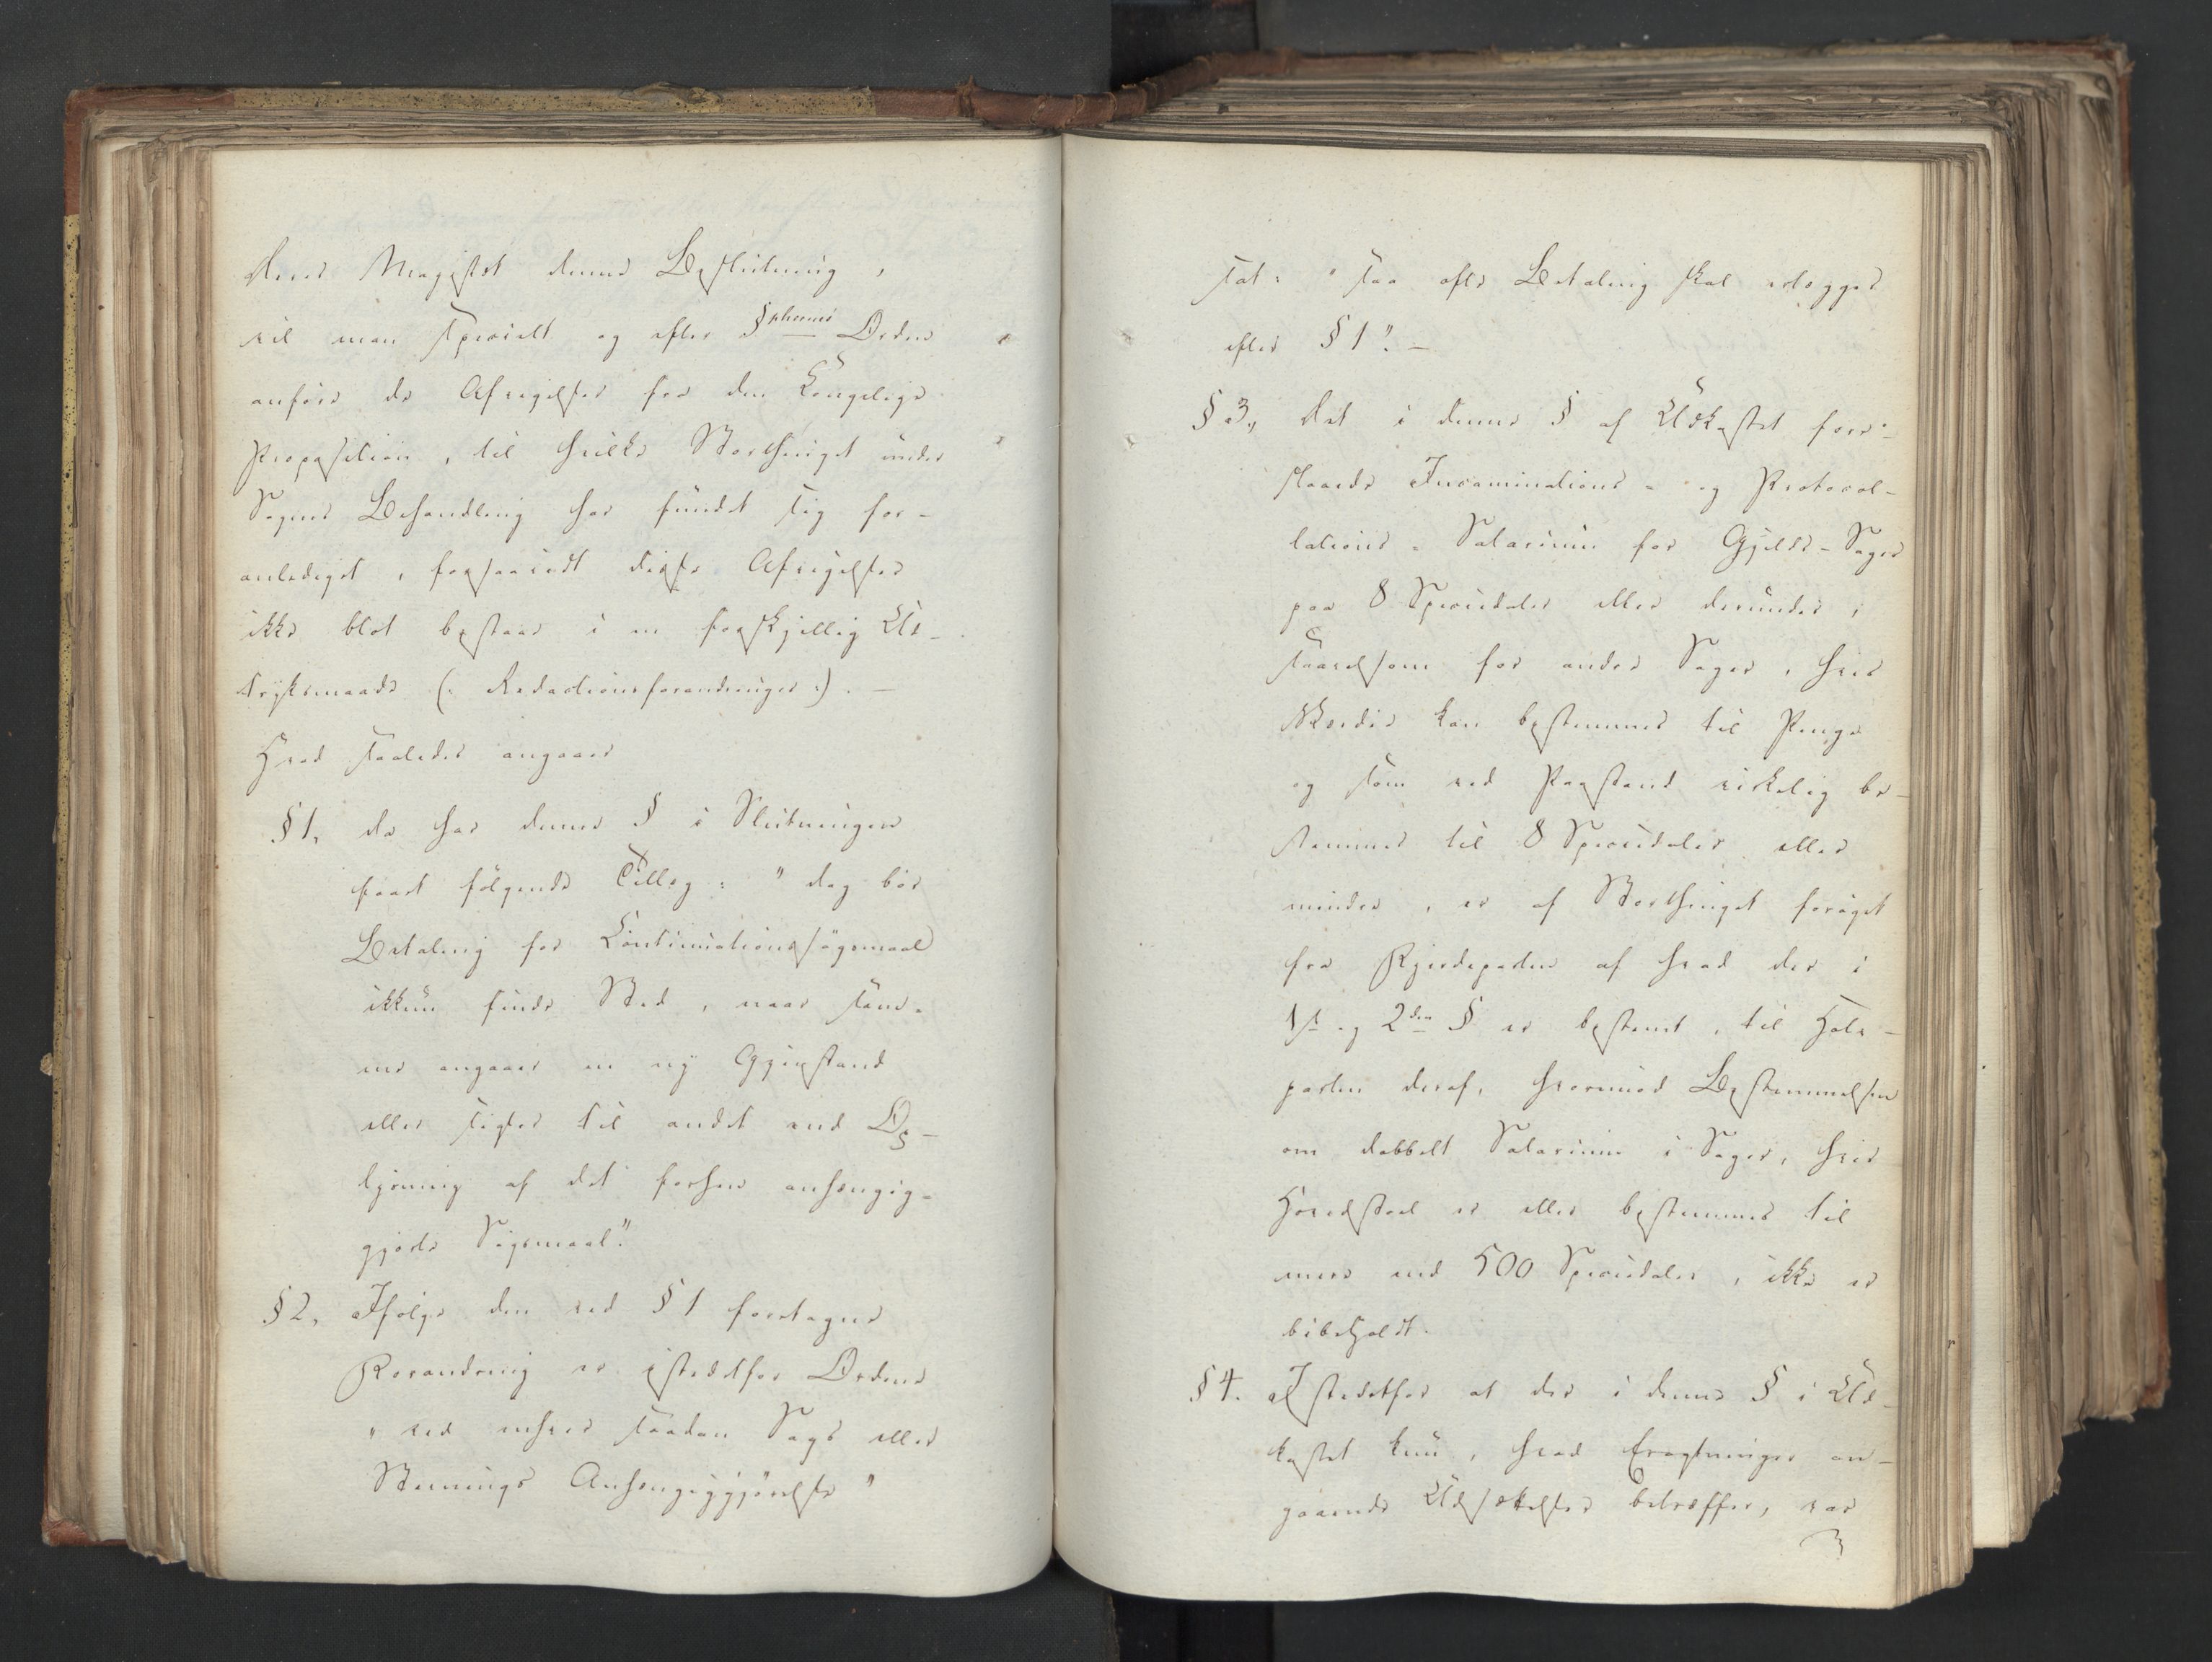 Deres Majestæt denne Beslutning,
vil man specielt og efter §phernes Orden
anføre de Afvigelser fra den Kongelige
Proposition, til hvilke Storthinget under
Sagens Behandling har fundet sig for-
anlediget, forsaavidt disse Afvigelser
ikke blot bestaae i en forskjellig Ud-
tryksmaade (: Redactionsforandringer :). —
Hvad saaledes angaaer
§ 1, da har denne § i Slutningen
faaet følgende Tillæg: "dog bør
Betaling for Continuationssøgsmaal
ikkun finde Sted, naar sam-
me angaaer en ny Gjenstand
eller sigter til andet end Op-
lysning af det forhen anhængig-
gjorte Søgsmaal."
§ 2, Ifølge den ved § 1 foretagne
Forandring er istedetfor Ordene
"ved enhver saadan Sags eller
Stevnings Anhængiggjørelse"
sat: "saa ofte Betaling skal erlægges
efter § 1". —
§ 3, Det i denne § af Udkastet fore-
slaaede Incaminations- og Protocol-
lations-Salarium for Gjelds-Sager
paa 8 Speciedaler eller derunder,
saavelsom for andre Sager, hvis
Værdie kan bestemmes til Penge
og som ved Paastand virkelig be-
stemmes til 8 Speciedaler eller
mindre, er af Storthinget forøget
fra Fjerdeparten af hvad der i
1ste og 2den § er bestemt, til Halv-
parten deraf, hvorimod Bestemmelsen
om dobbelt Salarium i Sager, hvis
Hovedstoel er eller bestemmes til
mere end 500 Speciedaler, ikke er
bibeholdt.
§ 4. Istedetfor at der i denne § i Ud-
kastet kun, hvad Eragtninger an-
gaaende Udsættelser betræffer, var